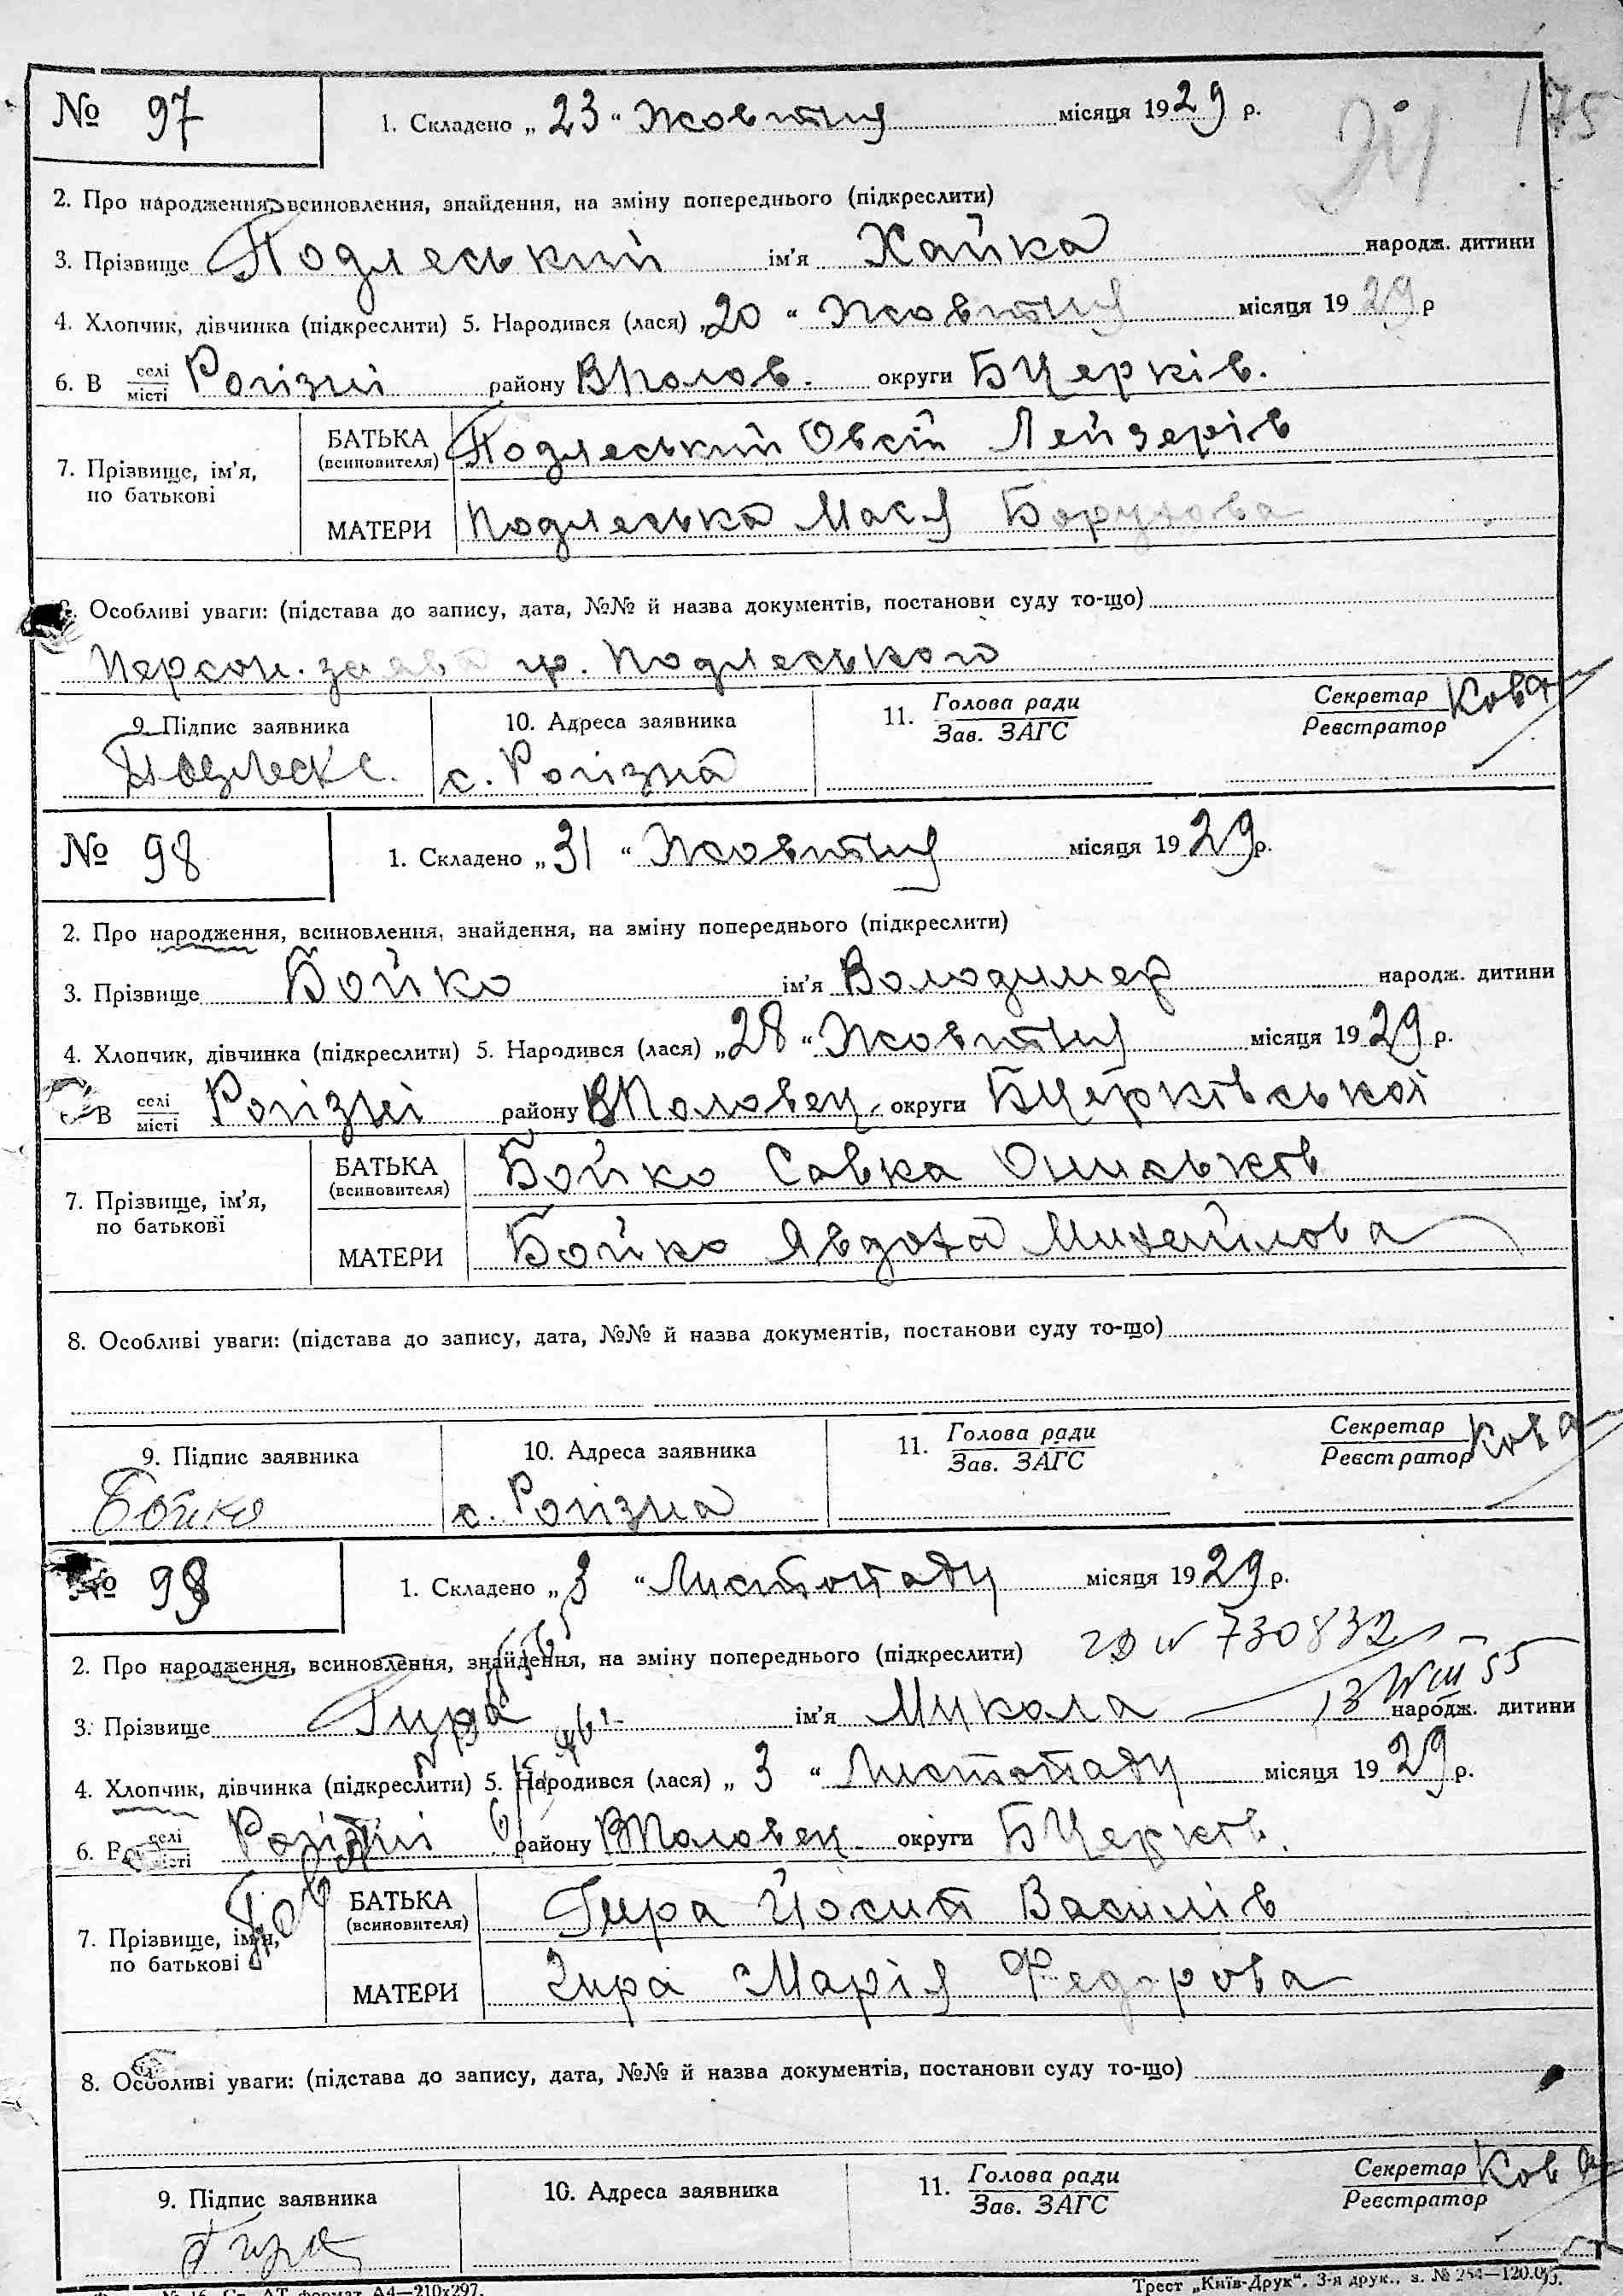 № 97
1. Складено „ 23 “ Жовтня місяця 1929 р.
175
2. Про народження, всиновлення, знайдення, на зміну попереднього (підкреслити)
3. Прізвище Подлеський ім’я Хайка народж. дитини
4. Хлопчик, дівчинка (підкреслити) 5. Народився (лася) „ 20 “ Жовтня місяця 1929 р
6. В селі/місті Рогізні району ВПолов. округи БЦерків.
7. Прізвище, ім’я, по батькові
БАТЬКА (всиновителя) Подлеський Овсій Лейзерів
МАТЕРИ Подлеська Мася Борухова
Особливі уваги: (підстава до запису, дата, №№ й назва документів, постанови суду то-що)
Персон. заява гр. Подлеського
9. Підпис заявника 10. Адреса заявника 11. Голова ради / Зав. ЗАГС Секретар / Реєстратор Кова
с. Рогізна
№ 98
1. Складено „ 31 “ Жовтня місяця 1929 р.
2. Про народження, всиновлення, знайдення, на зміну попереднього (підкреслити)
3. Прізвище Бойко ім’я Володимер народж. дитини
4. Хлопчик, дівчинка (підкреслити) 5. Народився (лася) „ 28 “ Жовтня місяця 1929 р.
В селі/місті Рогізні району ВПоловец. округи БЦерківської
7. Прізвище, ім’я, по батькові
БАТЬКА (всиновителя) Бойко Савка Ониськів
МАТЕРИ Бойко Явдоха Михайлова
8. Особливі уваги: (підстава до запису, дата, №№ й назва документів, постанови суду то-що)
9. Підпис заявника 10. Адреса заявника 11. Голова ради / Зав. ЗАГС Секретар / Реєстратор Кова
Бойко с. Рогізна
№ 99
1. Складено „ 3 “ Листопаду місяця 1929 р.
2. Про народження, всиновлення, знайдення, на зміну попереднього (підкреслити)
730832
3. Прізвище Гира ім’я Микола народж. дитини
4. Хлопчик, дівчинка (підкреслити) 5. Народився (лася) „ 3 “ Листопаду місяця 1929 р.
6. В селі/місті Рогізні району ВПоловец. округи БЦерків.
7. Прізвище, ім’я, по батькові
БАТЬКА (всиновителя) Гира Йосип Василів
МАТЕРИ Гира Марія Федорова
8. Особливі уваги: (підстава до запису, дата, №№ й назва документів, постанови суду то-що)
9. Підпис заявника 10. Адреса заявника 11. Голова ради / Зав. ЗАГС Секретар / Реєстратор Кова
Гира
А4—210х297. Трест „Київ-Друк“. 3-я друк., з. № 254—120.0